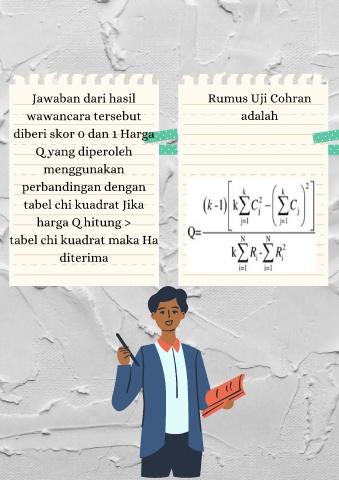 Jawaban dari hasil
wawancara tersebut
diberi skor 0 dan 1 Harga
Q yang diperoleh
menggunakan
perbandingan dengan
tabel chi kuadrat Jika
harga Q hitung >
tabel chi kuadrat maka Ha
diterima
Rumus Uji Cohran
adalah
Q= (k-1) [ k ∑_{j=1}^{k} C_j^2 − ( ∑_{j=1}^{k} C_j )^2 ] / k ∑_{i=1}^{N} R_i - ∑_{i=1}^{N} R_i^2